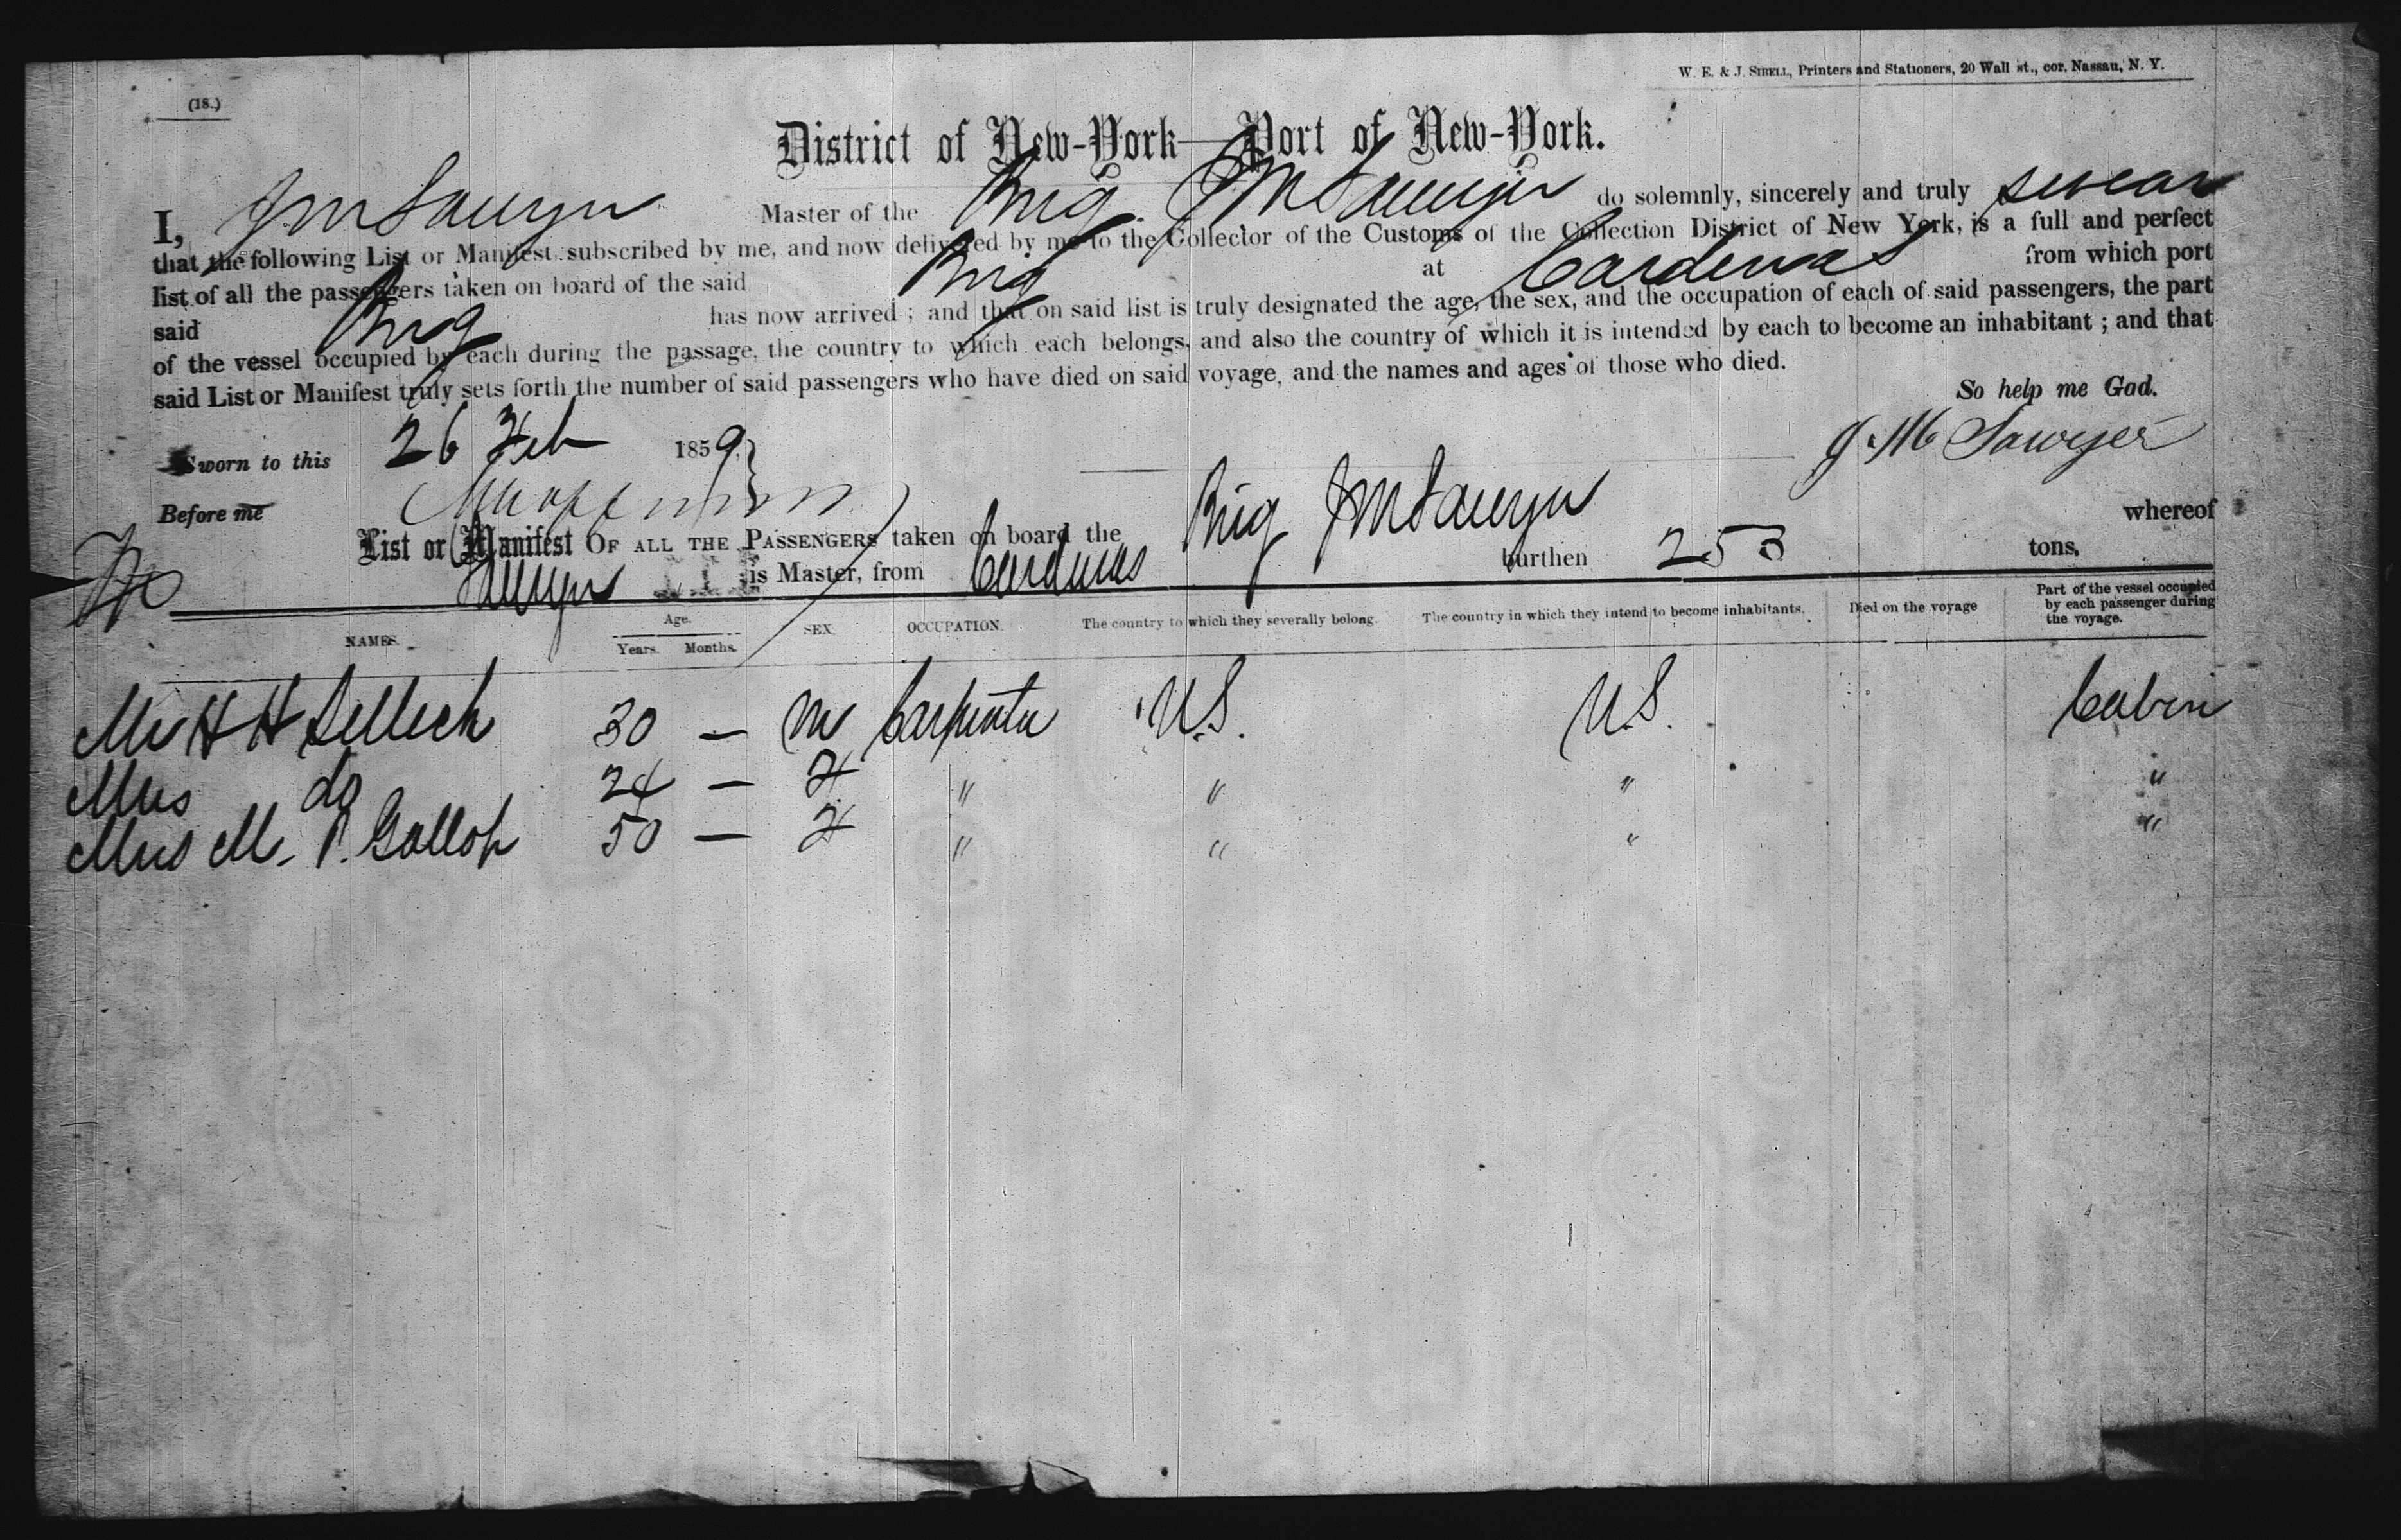 W. E. & J. SIBELL, Printers and Stationers, 20 Wall st., cor. Nassau, N. Y.
(18.)
District of New-York—Port of New-York.
I, J M Sawyer Master of the Brig J M Sawyer do solemnly, sincerely and truly swear
that the following List or Manifest subscribed by me, and now delivered by me to the Collector of the Customs of the Collection District of New York, is a full and perfect
list of all the passengers taken on board of the said Brig at Cardenas from which port
said Brig has now arrived; and that on said list is truly designated the age, the sex, and the occupation of each of said passengers, the part
of the vessel occupied by each during the passage, the country to which each belongs, and also the country of which it is intended by each to become an inhabitant; and that
said List or Manifest truly sets forth the number of said passengers who have died on said voyage, and the names and ages of those who died.
So help me God.
Sworn to this 26 Feb 1859,
J. M Sawyer
Before me
List or Manifest OF ALL THE PASSENGERS taken on board the Brig J M Sawyer whereof
Sawyer is Master, from Cardenas burthen 253 tons.
NAMES. Age. Years. Months. SEX. OCCUPATION. The country to which they severally belong. The country in which they intend to become inhabitants. Died on the voyage Part of the vessel occupied by each passenger during the voyage.
Mr H H Selleck 30 — M Carpenter U.S. U.S. Cabin
Mrs do 24 — F " " " "
Mrs M. P. Gallop 50 — F " " " "